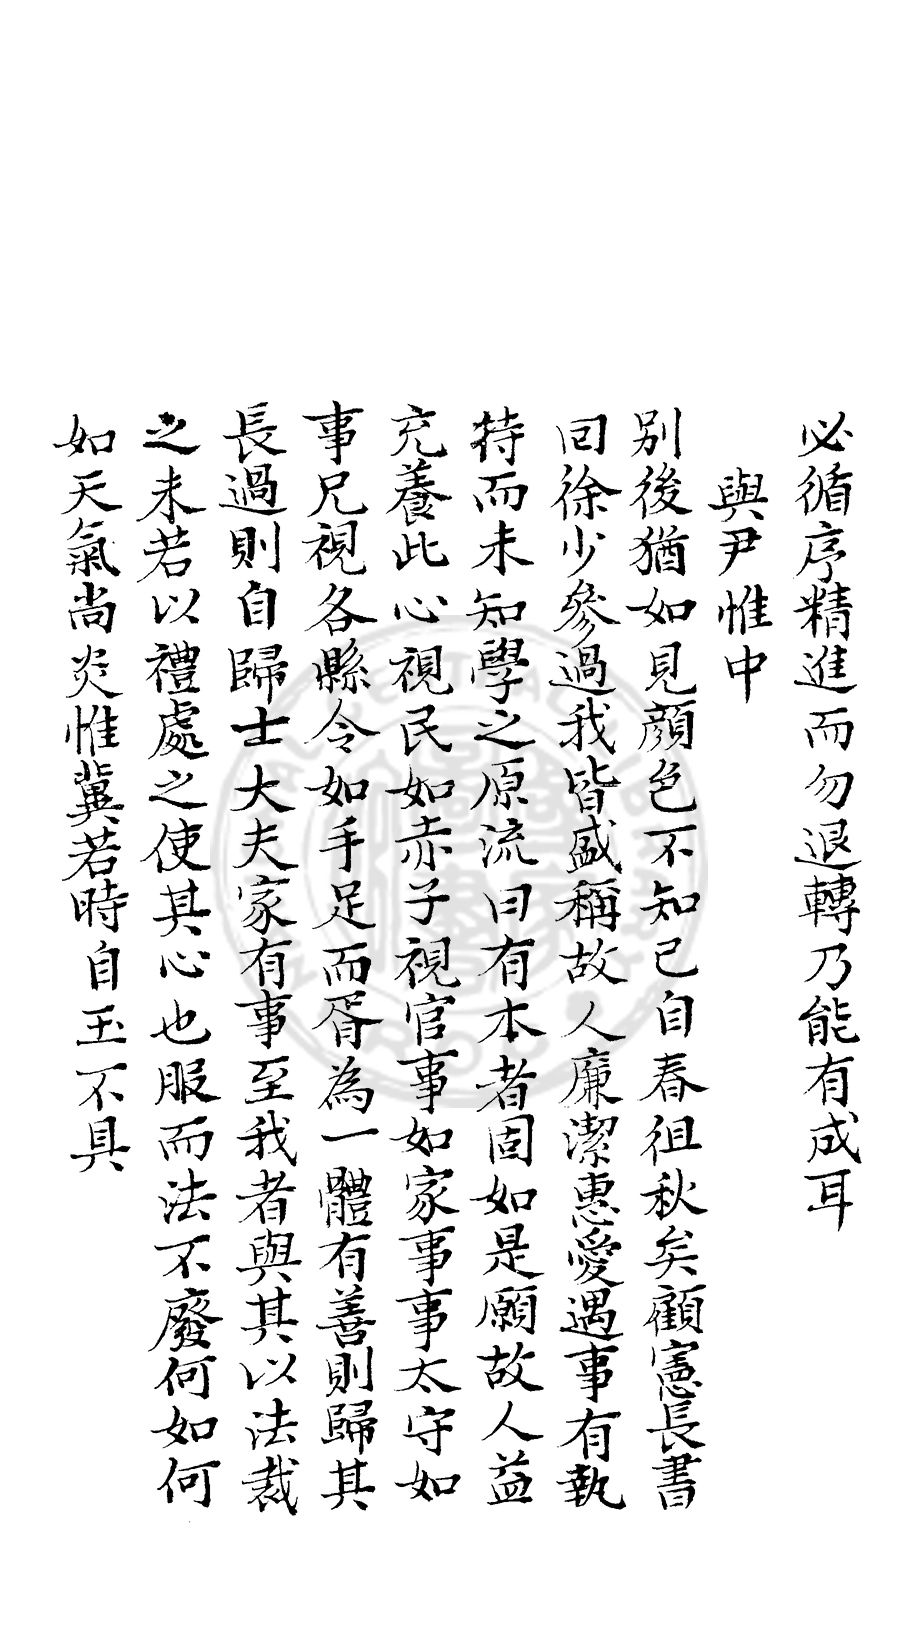 必循序精進而勿退轉乃能有成耳
與尹惟中
別後猶如見顔色不知已自春徂秋矣顧憲長書
回徐少參過我皆盛稱故人廉潔惠愛遇事有執
持而未知學之原流曰有本者固如是願故人益
充養此心視民如赤子視官事如家事事太守如
事兄視各縣令如手足而胥為一體有善則歸其
長過則自歸士大夫家有事至我者與其以法裁
之未若以禮處之使其心也服而法不廢何如何
如天氣尚炎惟冀若時自玉不具